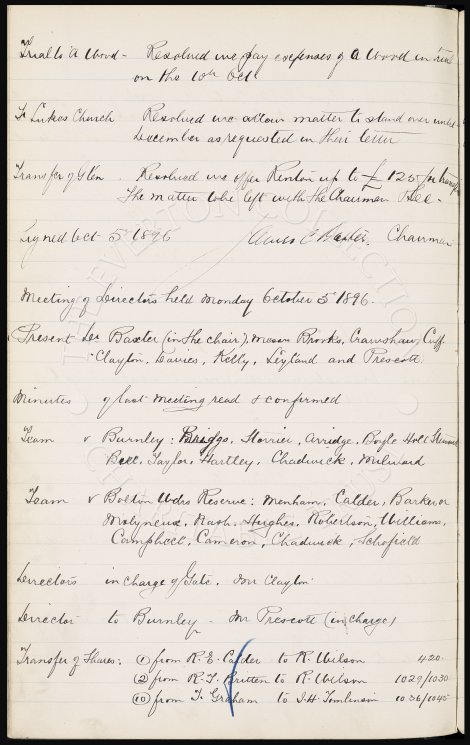 Trial to A Wood - Resolved we pay expenses of A Wood in trial
on the 10th Oct
St Lukes Church Resolved we allow matter to stand over until
December as requested in their letter
Transfer of Glen. Resolved we offer Renton up to £125 for transfer
The matter to be left with the Chairman & Sec -
Signed Oct 5th 1896 James C Baxter. Chairman
Meeting of Directors held Monday October 5th 1896.
Present Dr Baxter (in the chair), Messrs Brooks, Crawshaw, Cuff
Clayton, Davies, Kelly, Leyland and Prescott
Minutes of last meeting read & confirmed
Team v Burnley: Briggs, Storrier, Arridge, Boyle Holt Stewart
Bell, Taylor, Hartley, Chadwick, Milward
Team v Bolton Wdrs Reserve: Menham, Calder, Barker or
Molyneux, Nash, Hughes, Robertson, Williams,
Campbell, Cameron, Chadwick, Schofield
Directors in charge of Gate. Mr Clayton
Director to Burnley - Mr Prescott (in charge)
Transfer of Shares: (1) from R. E. Calder to R. Wilson 420
(2) from R. T. Britten to R. Wilson 1029/1030
(10) from T. Graham to J. H. Tomlinson 1036/1045
THE EVERTON COLLECTION